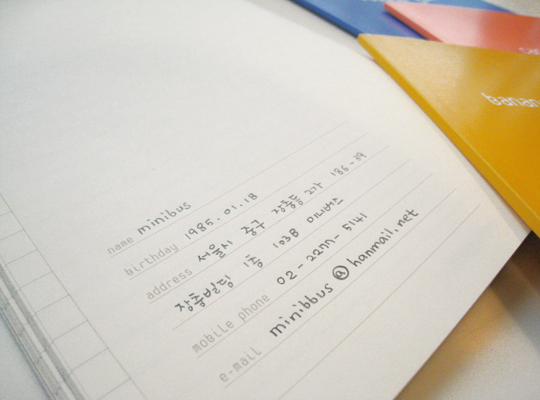 name minibus
birthday 1985.01.18
address 서울시 중구 장충동 2가 186-39
장충빌딩 1층 103B 미니버스
mobile phone 02-2277-5141
e-mail minibbus@hanmail.net
banan